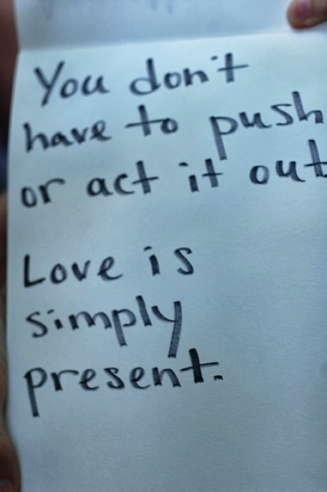 You don't
have to push
or act it out
Love is
simply
present.